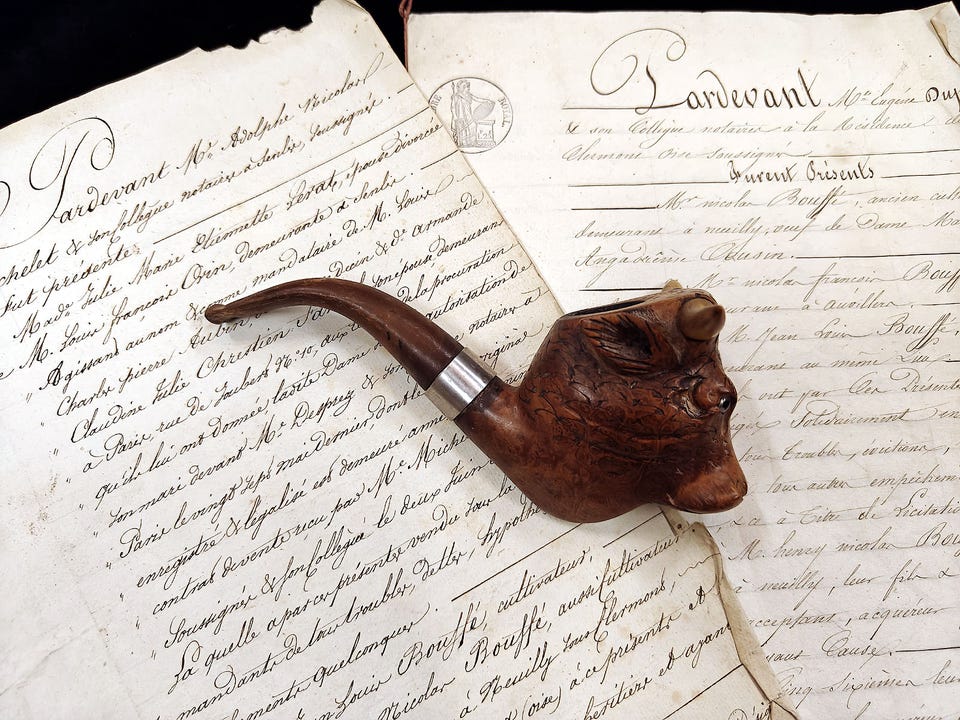 Pardevant Me. Adolphe Nicolas
chelet & son Collègue notaires à Senlis, soussignés.
fut présente
Made. Julie Marie Etiennette Serat, épouse divorcée
M. Louis françois Orin, demeurante à Senlis.
Agissant au nom & comme mandataire de M. Louis
Charles pierre Aubin, & de. armande
Claudine Julie Chrestien son épouse demeurans
à Paris, rue de Joubert No. 10, aux de la procuration
qu'ils lui ont donnée, ladite Dame autorisation de
son mari devant Me. Desprez & son notaires à
Paris le vingt sept mai dernier, dont le origina
enregistré & légalisé est demeuré anne
contrat de vente reçu par Me. Miche
soussigné & son Collègue le deux Juin
La quelle a par ces présentes vendu sous la
mandante de tous troubles, dettes, hypothe
quelconques.
Louis Bouffé, cultivateur,
Nicolas Bouffé, aussi cultivateur
à Neuilly sous Clermont,
(oise) à ce présents et
héritiers et ayans
ROYAL
Pardevant Me. Eugène Dup
& son Collègue notaires à la Résidence de
Clermont oise soussignés
Furent Présents
Mr. nicolas Bouffé, ancien cult
demeurant à neuilly, veuf de Dame Ma
Angadrème
Mr. nicolas françois Bouff
à auvillers.
M. Jean Louis Bouffé,
eurant au même Lieu
ont par Ces Présente
Solidairement
troubles, évictions,
tous autres empêchem
à ce à Titre de Licitatio
M. henry nicolas Bou
à neuilly, leur fils &
acceptant, acquéreur
sans Cause.
Cinq sixièmes